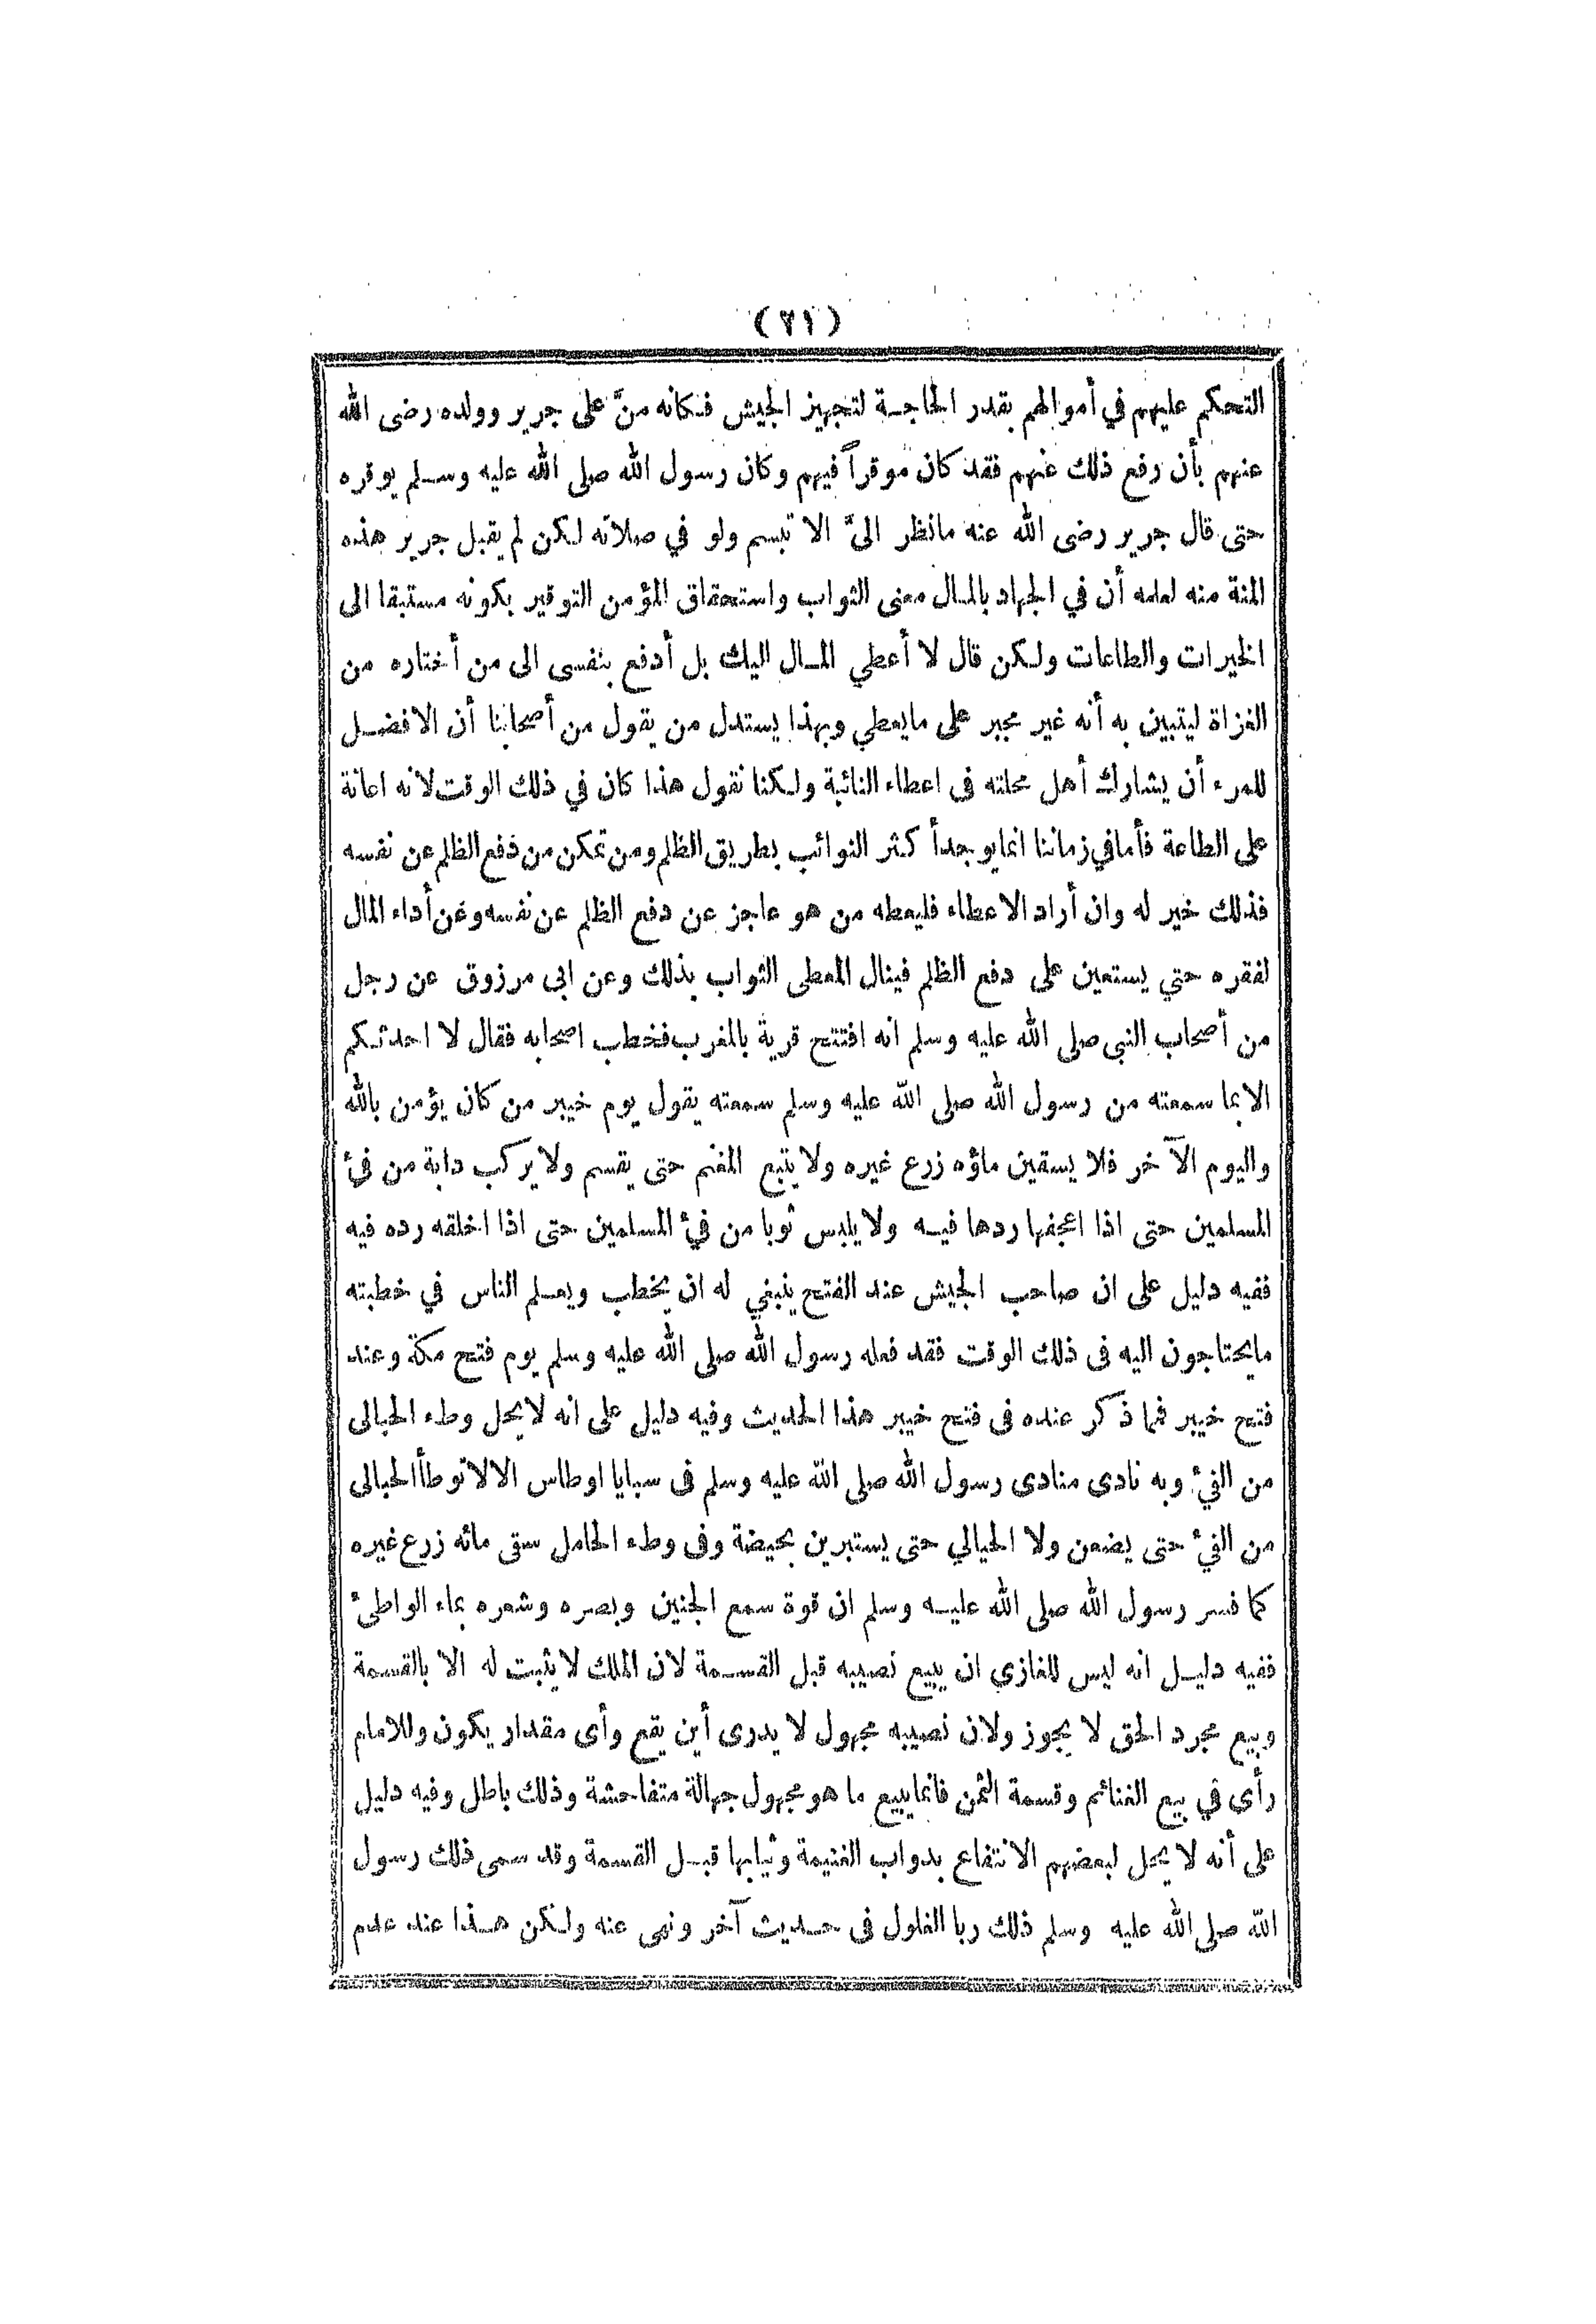 (٢١)
التحكم عليهم في أموالهم بقدر الحاجة لتجهيز الجيش فكانه منَّ على جرير وولده رضى الله
عنهم بأن رفع ذلك عنهم فقد كان موقراً فيهم وكان رسول الله صلى الله عليه وسلم يوقره
حتى قال جرير رضى الله عنه مانظر الىَّ الا تبسم ولو في صلاته لكن لم يقبل جرير هذه
المنة منه لعلمه أن في الجهاد بالمال معنى الثواب واستحقاق المؤمن التوقير بكونه مستبقا الى
الخيرات والطاعات ولكن قال لا أعطي المال اليك بل أدفع بنفسى الى من أختاره من
الغزاة ليتبين به أنه غير مجبر على مايعطي وبهذا يستدل من يقول من أصحابنا أن الافضل
للمرء أن يشارك أهل محلته فى اعطاء النائبة ولكنا نقول هذا كان في ذلك الوقت لانه اعانة
على الطاعة فأمافي زماننا انمايوجدأ كثر النوائب بطريق الظلم ومن تمكن من دفع الظلم عن نفسه
فذلك خير له وان أراد الاعطاء فليعطه من هو عاجز عن دفع الظلم عن نفسه وعن أداء المال
لفقره حتي يستعين على دفع الظلم فينال المعطى الثواب بذلك وعن ابى مرزوق عن رجل
من أصحاب النبى صلى الله عليه وسلم انه افتتح قرية بالمغرب فخطب اصحابه فقال لا احدثكم
الابما سمعته من رسول الله صلى الله عليه وسلم سمعته يقول يوم خيبر من كان يؤمن بالله
واليوم الآخر فلا يسقين ماؤه زرع غيره ولا يتبع المغنم حتى يقسم ولا يركب دابة من فئ
المسلمين حتى اذا اعجفها ردها فيه ولا يلبس ثوبا من فئ المسلمين حتى اذا اخلقه رده فيه
ففيه دليل على ان صاحب الجيش عند الفتح ينبغي له ان يخطب ويعلم الناس في خطبته
مايحتاجون اليه فى ذلك الوقت فقد فعله رسول الله صلى الله عليه وسلم يوم فتح مكة وعند
فتح خيبر فما ذكر عنده فى فتح خيبر هذا الحديث وفيه دليل على انه لايحل وطء الحبالى
من الفئ وبه نادى منادى رسول الله صلى الله عليه وسلم فى سبايا اوطاس الالا توطأ الحبالى
من الفئ حتى يضعن ولا الحيالي حتى يستبرين بحيضة وفى وطء الحامل سقى مائه زرع غيره
كما فسر رسول الله صلى الله عليه وسلم ان قوة سمع الجنين وبصره وشعره بماء الواطئ
ففيه دليل انه ليس للغازى ان يبيع نصيبه قبل القسمة لان الملك لا يثبت له الا بالقسمة
وبيع مجرد الحق لا يجوز ولان نصيبه مجهول لا يدرى أين يقع وأى مقدار يكون وللامام
رأى في بيع الغنائم وقسمة الثمن فانمايبيع ما هو مجهول جهالة متفاحشة وذلك باطل وفيه دليل
على أنه لا يحل لبعضهم الانتفاع بدواب الغنيمة وثيابها قبل القسمة وقد سمى ذلك رسول
الله صلى الله عليه وسلم ذلك ربا الغلول فى حديث آخر ونهى عنه ولكن هذا عند عدم